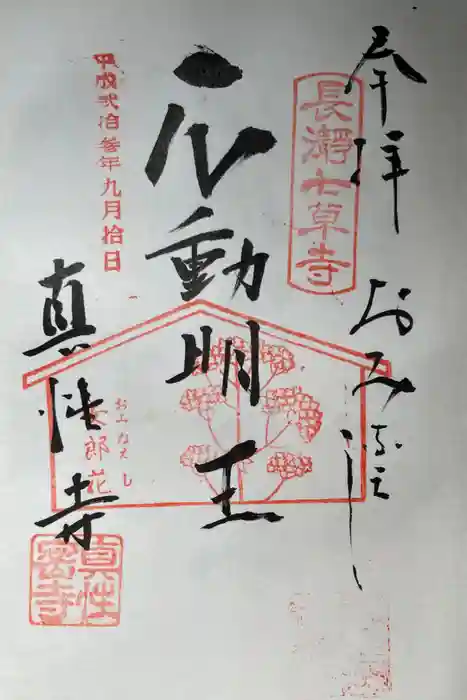 奉拝 おみなえし
長瀞七草寺
不動明王
平成弐拾参年九月拾日
おみなえし
女郎花
真性寺
真性
密寺